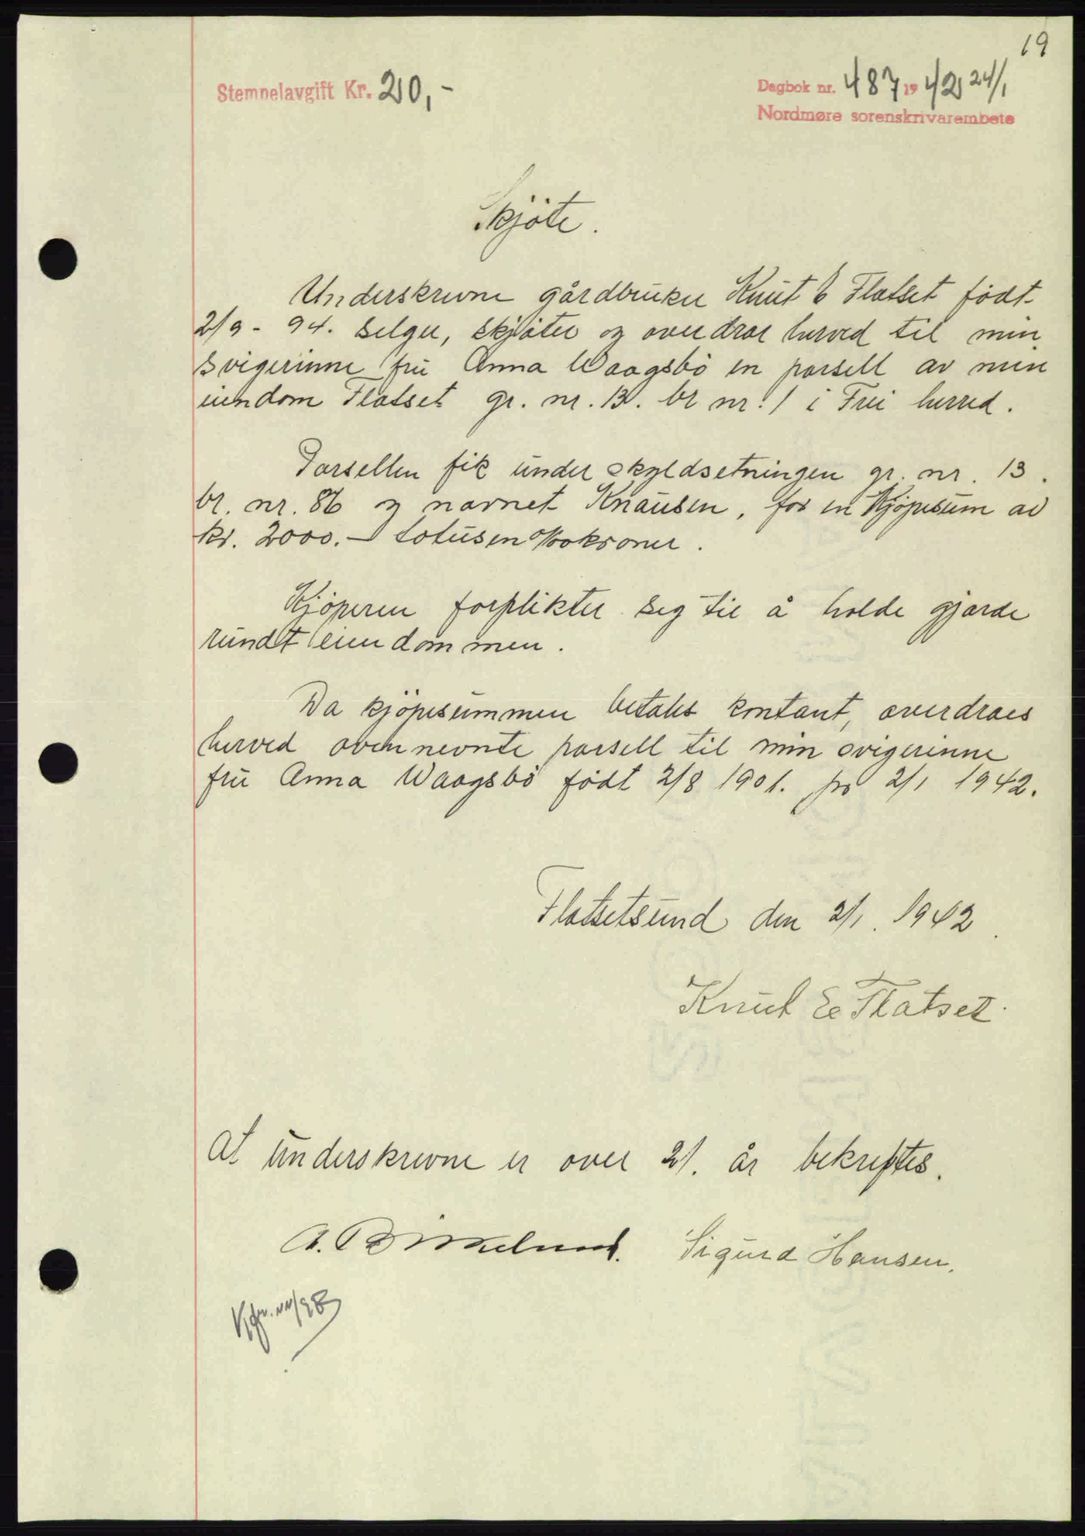 19
Stemnelavgift Kr. 20,-
Dagbok nr. 487 1942 24/1
Nordmøre sorenskrivarembete
Skjöte.
Underskrevne gårdbruker Knut E Flatset födt
2/9 - 94. selger, skjöter og overdrar herved til min
svigerinne frü Anna Waagsbö en parsell av min
eiendom Flatset gr. nr. 13. br nr. 1 i Frei herred.
Parsellen fik ünder skyldsetningen gr. nr. 13.
br. nr. 86 og navnet Knausen, for en kjöpesüm av
kr. 2000.- totüsen kroner.
Kjöperen forplikter seg til å holde gjærde
rundt eiendommen.
Da kjöpesümmen betales kontant, overdraes
herved ovennevnte parsell til min svigerinne
frü Anna Waagsbö födt 2/8 1901. pr 2/1 1942.
Flatsetsund den 2/1. 1942.
Knut E. Flatset.
At ünderskrevne er over 21. år bekreftes.
A. Birkelund. Sigurd Hansen.